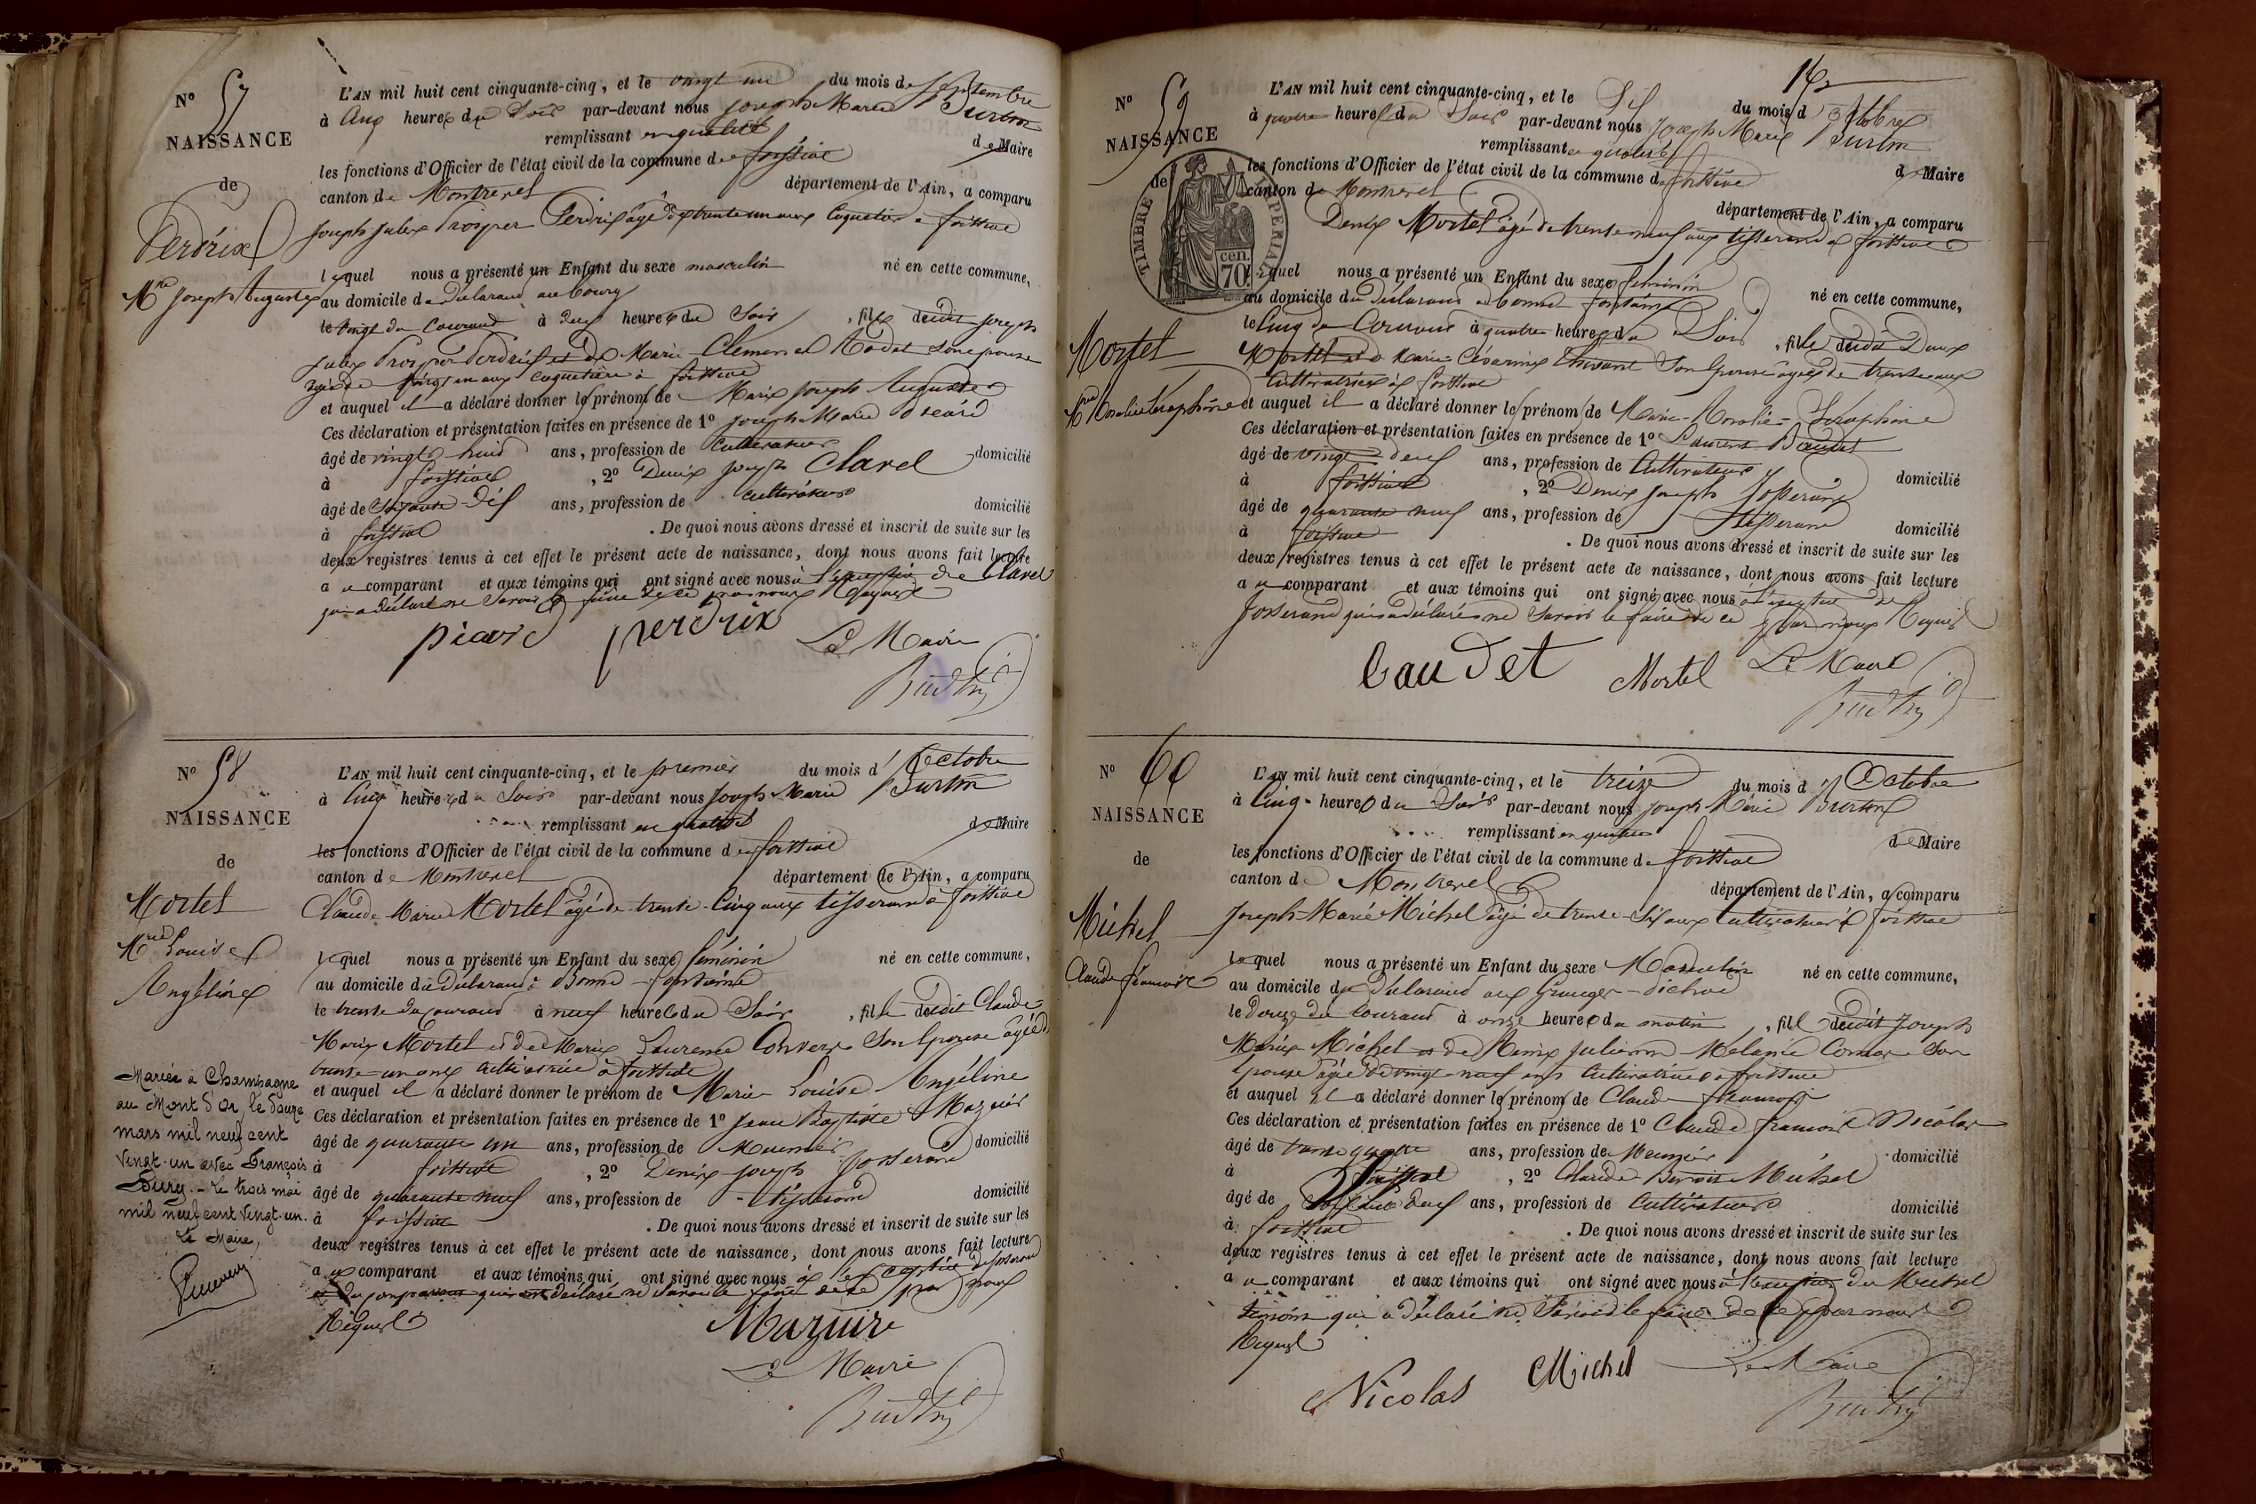 N° 57
NAISSANCE
de
Perdrix
Mie Joseph Auguste
L'AN mil huit cent cinquante-cinq, et le vingt un du mois de Septembre
à Cinq heures du Soir par-devant nous Joseph Marie Burtin
remplissant en qualité de Maire
les fonctions d'Officier de l'état civil de la commune de foissiat
canton de Montrevel département de l'Ain, a comparu
Joseph Jules Prosper Perdrix âgé de trente un ans Coquetier à foissiat
lequel nous a présenté un Enfant du sexe masculin né en cette commune,
au domicile du Déclarant au bourg
le vingt du Courant à deux heures du Soir, fils dudit Joseph
Jules Prosper Perdrix et de Marie Clémence Rodet son épouse
âgée de vingt un ans Coquetière à foissiat
et auquel il a déclaré donner le prénom de Marie Joseph Auguste
Ces déclaration et présentation faites en présence de 1° Joseph Marie Picard
âgé de vingt huit ans, profession de Cultivateur domicilié
à foissiat, 2° Denis Joseph Clarel
âgé de Soixante Dix ans, profession de cultivateur domicilié
à foissiat. De quoi nous avons dressé et inscrit de suite sur les
deux registres tenus à cet effet le présent acte de naissance, dont nous avons fait lecture
au comparant et aux témoins qui ont signé avec nous à l'exception de Clarel
qui a déclaré ne savoir le faire de ce par nous Requis
picard perdrix Le Maire
Burtin
N° 58
NAISSANCE
de
Mortel
Mie Louise
Angéline
Mariée à Champagne
au Mont d'Or, le douze
mars mil neuf cent
vingt-un avec François
Loury. - Le trois mai
mil neuf cent vingt-un.
Le Maire,
L'AN mil huit cent cinquante-cinq, et le premier du mois d'Octobre
à Cinq heures du Soir par-devant nous Joseph Marie Burtin
remplissant en qualité de Maire
les fonctions d'Officier de l'état civil de la commune de foissiat
canton de Montrevel département de l'Ain, a comparu
Claude Marie Mortel âgé de trente-Cinq ans tisserand à foissiat
lequel nous a présenté un Enfant du sexe féminin né en cette commune,
au domicile du Déclarant à Bonne-fontaine
le trente du courant à neuf heures du Soir, fille dudit Claude
Marie Mortel et de Marie Laurence Convert Son épouse âgée de
trente-un ans cultivatrice à foissiat
et auquel il a déclaré donner le prénom de Marie Louise Angéline
Ces déclaration et présentation faites en présence de 1° Jean Baptiste Mazuir
âgé de quarante un ans, profession de Meunier domicilié
à foissiat, 2° Denis Joseph Josserand
âgé de quarante neuf ans, profession de tisserand domicilié
à foissiat. De quoi nous avons dressé et inscrit de suite sur les
deux registres tenus à cet effet le présent acte de naissance, dont nous avons fait lecture
au comparant et aux témoins qui ont signé avec nous à l'exception de Josserand
et du comparant qui ont déclaré ne savoir le faire de ce par nous
Requis
Mazuire
Le Maire
Burtin
162
N° 59
NAISSANCE
de
TIMBRE IMPERIAL
cen.
70.
Mortel
Mie Rosalie Séraphine
L'AN mil huit cent cinquante-cinq, et le Dix du mois d'Octobre
à quatre heures du Soir par-devant nous Joseph Marie Burtin
remplissant en qualité de Maire
les fonctions d'Officier de l'état civil de la commune de foissiat
canton de Montrevel département de l'Ain, a comparu
Denis Mortel âgé de trente neuf ans tisserand à foissiat
lequel nous a présenté un Enfant du sexe féminin né en cette commune,
au domicile du Déclarant à bonne fontaine
le Cinq du Courant à quatre heures du Soir, fille dudit Denis
Mortel et de Marie Césarine Son épouse âgée de trente ans
Cultivatrice à foissiat
et auquel il a déclaré donner le prénom de Marie-Rosalie-Séraphine
Ces déclaration et présentation faites en présence de 1° Laurent Baudet
âgé de vingt deux ans, profession de Cultivateur domicilié
à foissiat, 2° Denis Joseph Josserand
âgé de quarante neuf ans, profession de tisserand domicilié
à foissiat. De quoi nous avons dressé et inscrit de suite sur les
deux registres tenus à cet effet le présent acte de naissance, dont nous avons fait lecture
au comparant et aux témoins qui ont signé avec nous à l'exception de
Josserand qui a déclaré ne Savoir le faire de ce par nous Requis
baudet Mortel Le Maire
Burtin
N° 60
NAISSANCE
de
Michel
Claude françois
L'AN mil huit cent cinquante-cinq, et le treize du mois d'Octobre
à Cinq heures du Soir par-devant nous Joseph Marie Burtin
remplissant en qualité de Maire
les fonctions d'Officier de l'état civil de la commune de foissiat
canton de Montrevel département de l'Ain, a comparu
Joseph-Marie Michel âgé de trente-Six ans Cultivateur à foissiat
lequel nous a présenté un Enfant du sexe Masculin né en cette commune,
au domicile du Déclarant aux Granges-
le Douze du Courant à onze heures du matin, fils dudit Joseph
Marie Michel et de Marie Julienne Mélanie Son
épouse âgée de vingt-neuf ans Cultivatrice à foissiat
et auquel il a déclaré donner le prénom de Claude françois
Ces déclaration et présentation faites en présence de 1° Claude françois Nicolas
âgé de trente quatre ans, profession de Meunier domicilié
à foissiat, 2° Claude Benoit Michel
âgé de Soixante Deux ans, profession de Cultivateur domicilié
à foissiat. De quoi nous avons dressé et inscrit de suite sur les
deux registres tenus à cet effet le présent acte de naissance, dont nous avons fait lecture
au comparant et aux témoins qui ont signé avec nous à l'exception du Michel
témoin qui a déclaré ne Savoir le faire de ce par nous
Requis
Nicolas Michel Le Maire
Burtin